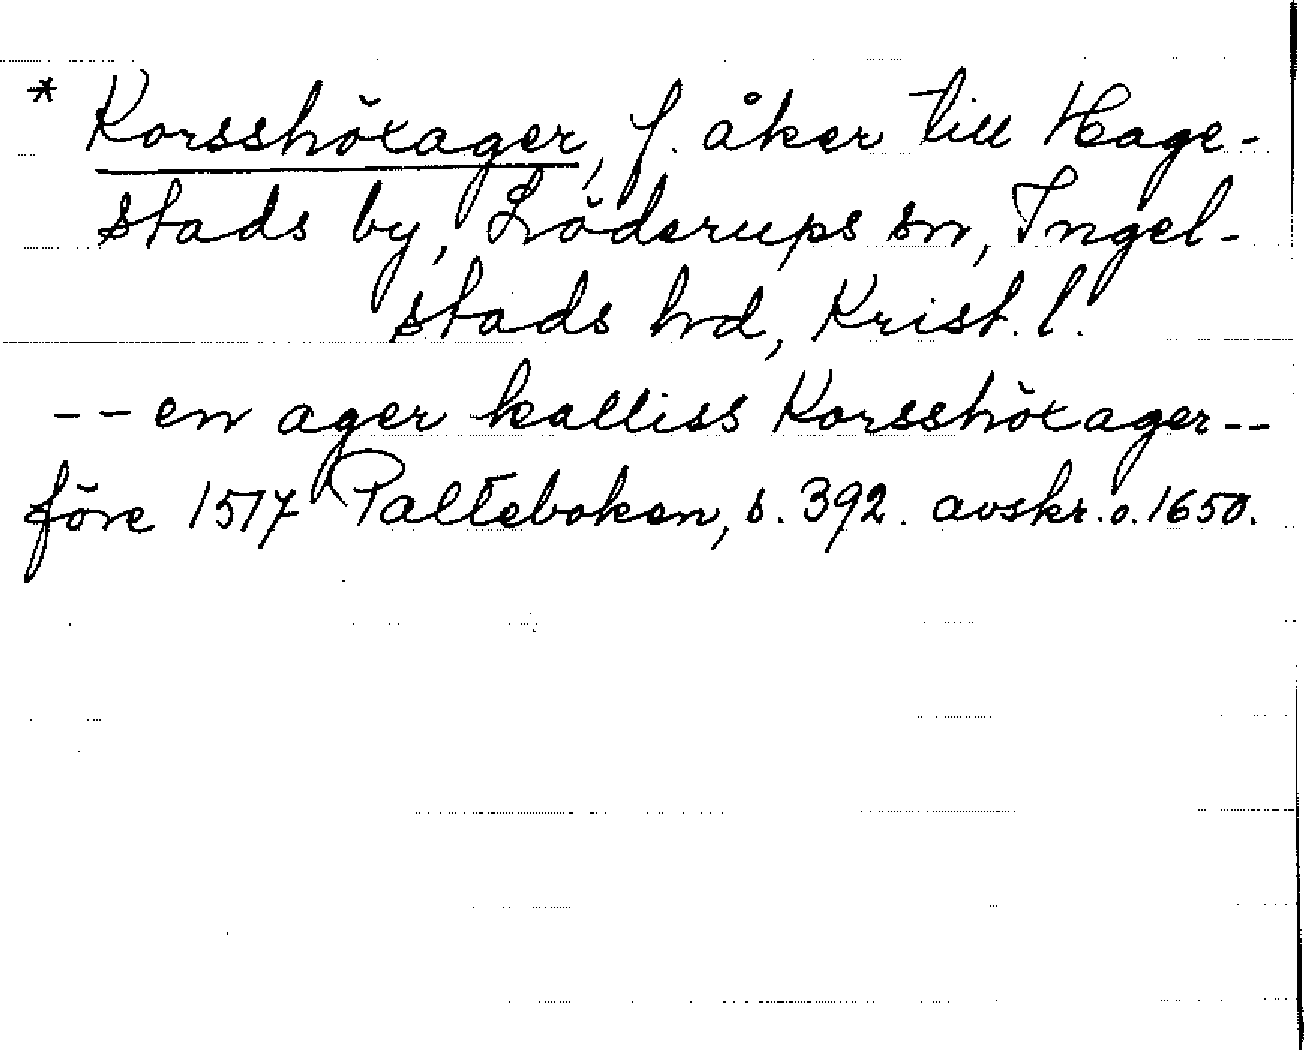 * Korsshöxager, f. åker till Hage-
stads by, Löderups sn, Ingel-
stads hd, Krist. l.
-- en ager kalliss Korsshöxager --
före 1517 Palteboken, s. 392. avskr. o. 1650.